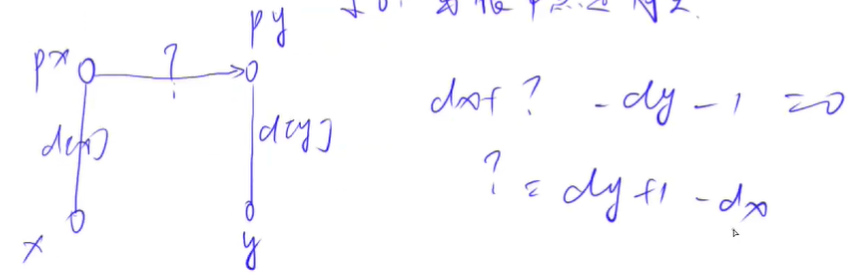 py
px
?
d[x]
d[y]
x
y
dx+ ? - dy - 1 = 0
? = dy+1 - dx